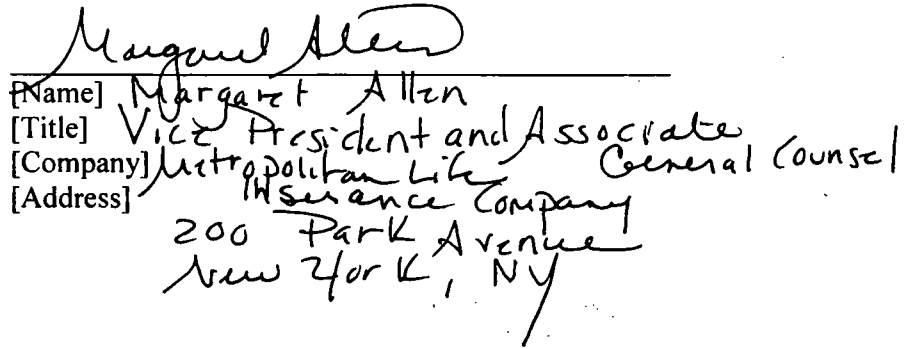 Margaret Allen
[Name] Margaret Allen
[Title] Vice President and Associate
General Counsel
[Company] Metropolitan Life
Insurance Company
[Address]
200 Park Avenue
New York, NY